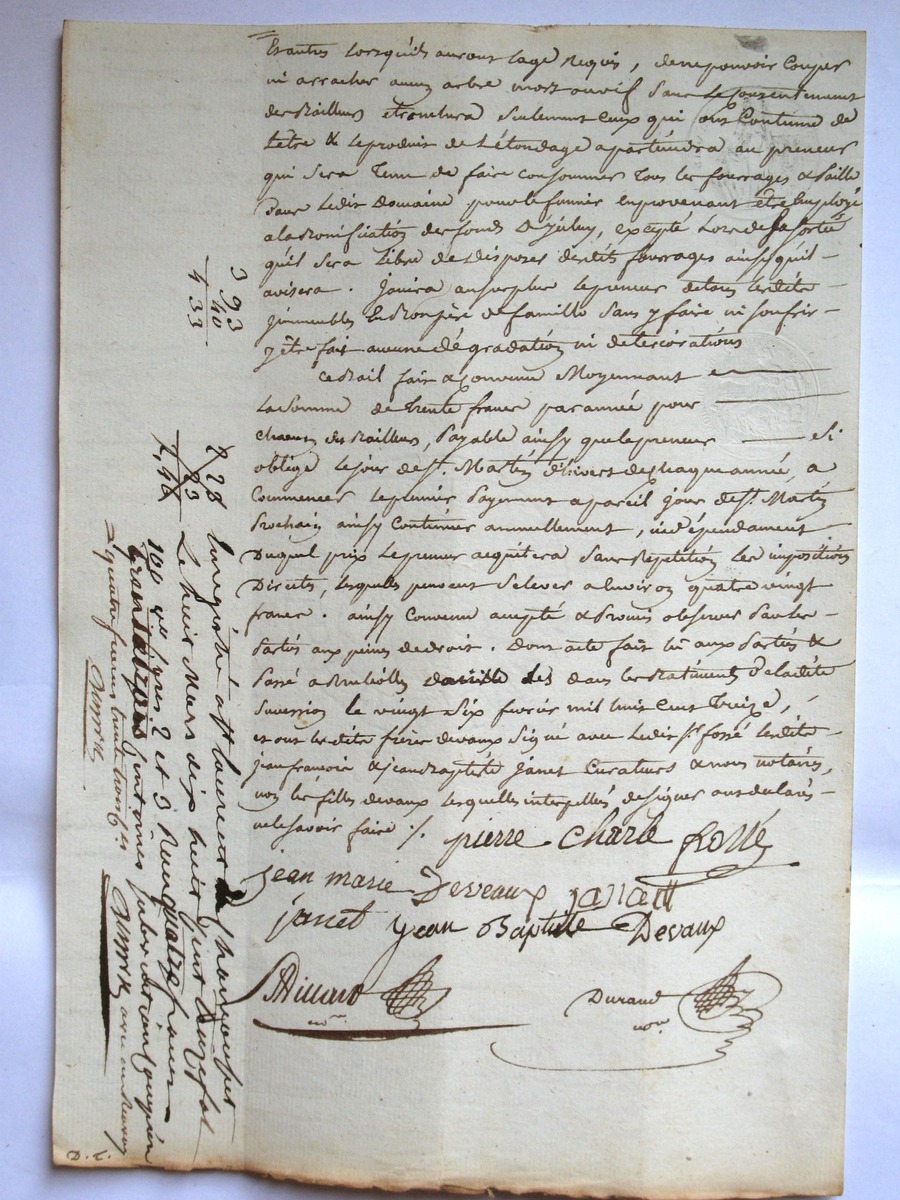 Et autres lorsqu'ils auront l'age requis, de ne pouvoir Couper
ni arracher aucun arbre mort ou vif Sans le Consentement
des Bailleurs et tondra Seulement Ceux qui ont Contume de
l'etre & le produit de l'étondage apartiendra au preneur
qui Sera Tenu de faire Consommer Tous les fourrages & Paille
Dans Ledit Domaine pour le fumier En provenant être Employé
a la Bonification des fonds D'iceluy, excepté Lors de Sa Sortie
qu'il Sera Libre de Disposer desdits fourrages ainsy qu'il
avisera. Jouira au Surplus le preneur de tous lesdits
immeubles En Bon père de famille Sans y faire ni Souffrir
y être fait aucune dégradation ni deteriorations
Ce Bail fait & Convenu Moyennant
La Somme de trente francs par année pour
chacun des Bailleurs, Payable ainsy que le preneur Si
oblige le jour de St. Martin d'hivert de Chaque année, a
Commencer le premier Payement a pareil jour de St. Martin
Prochain ainsy Continuer annuellement, indépendament
Duquel prix Le preneur acquitera Sans Repetition les impositions
Directes, lesquelles peuvent S'elever a Environ quatre vingt
francs. ainsy Convenu accepté & Promis observer Par les
Parties aux peines de droit. Dont acte fait lû aux Parties &
Passé a dans les Batiments De ladite
Succession le vingt Six fevrier mil huit Cent Treize,
et ont lesdits frères devaux Signé avec Ledit Sr. fossé lesdits
jean francois & jean Baptiste Janet Curateurs & nous notaires,
non les filles devaux Lesquelles interpellés de Signer ont declarés
ne le Savoir faire ./.
pierre Charle fossé
jean marie Deveaux janatt
janet jean Baptiste Devaux
Durand
nore.
3 93
40
4 33
2 20
23
Enregistré a St Laurent
Le huit Mars dix huit Cent treize fol
100 vo. Cases 2 et 3 Reçu quatre francs
quatre francs trente trois Ces
D. L.